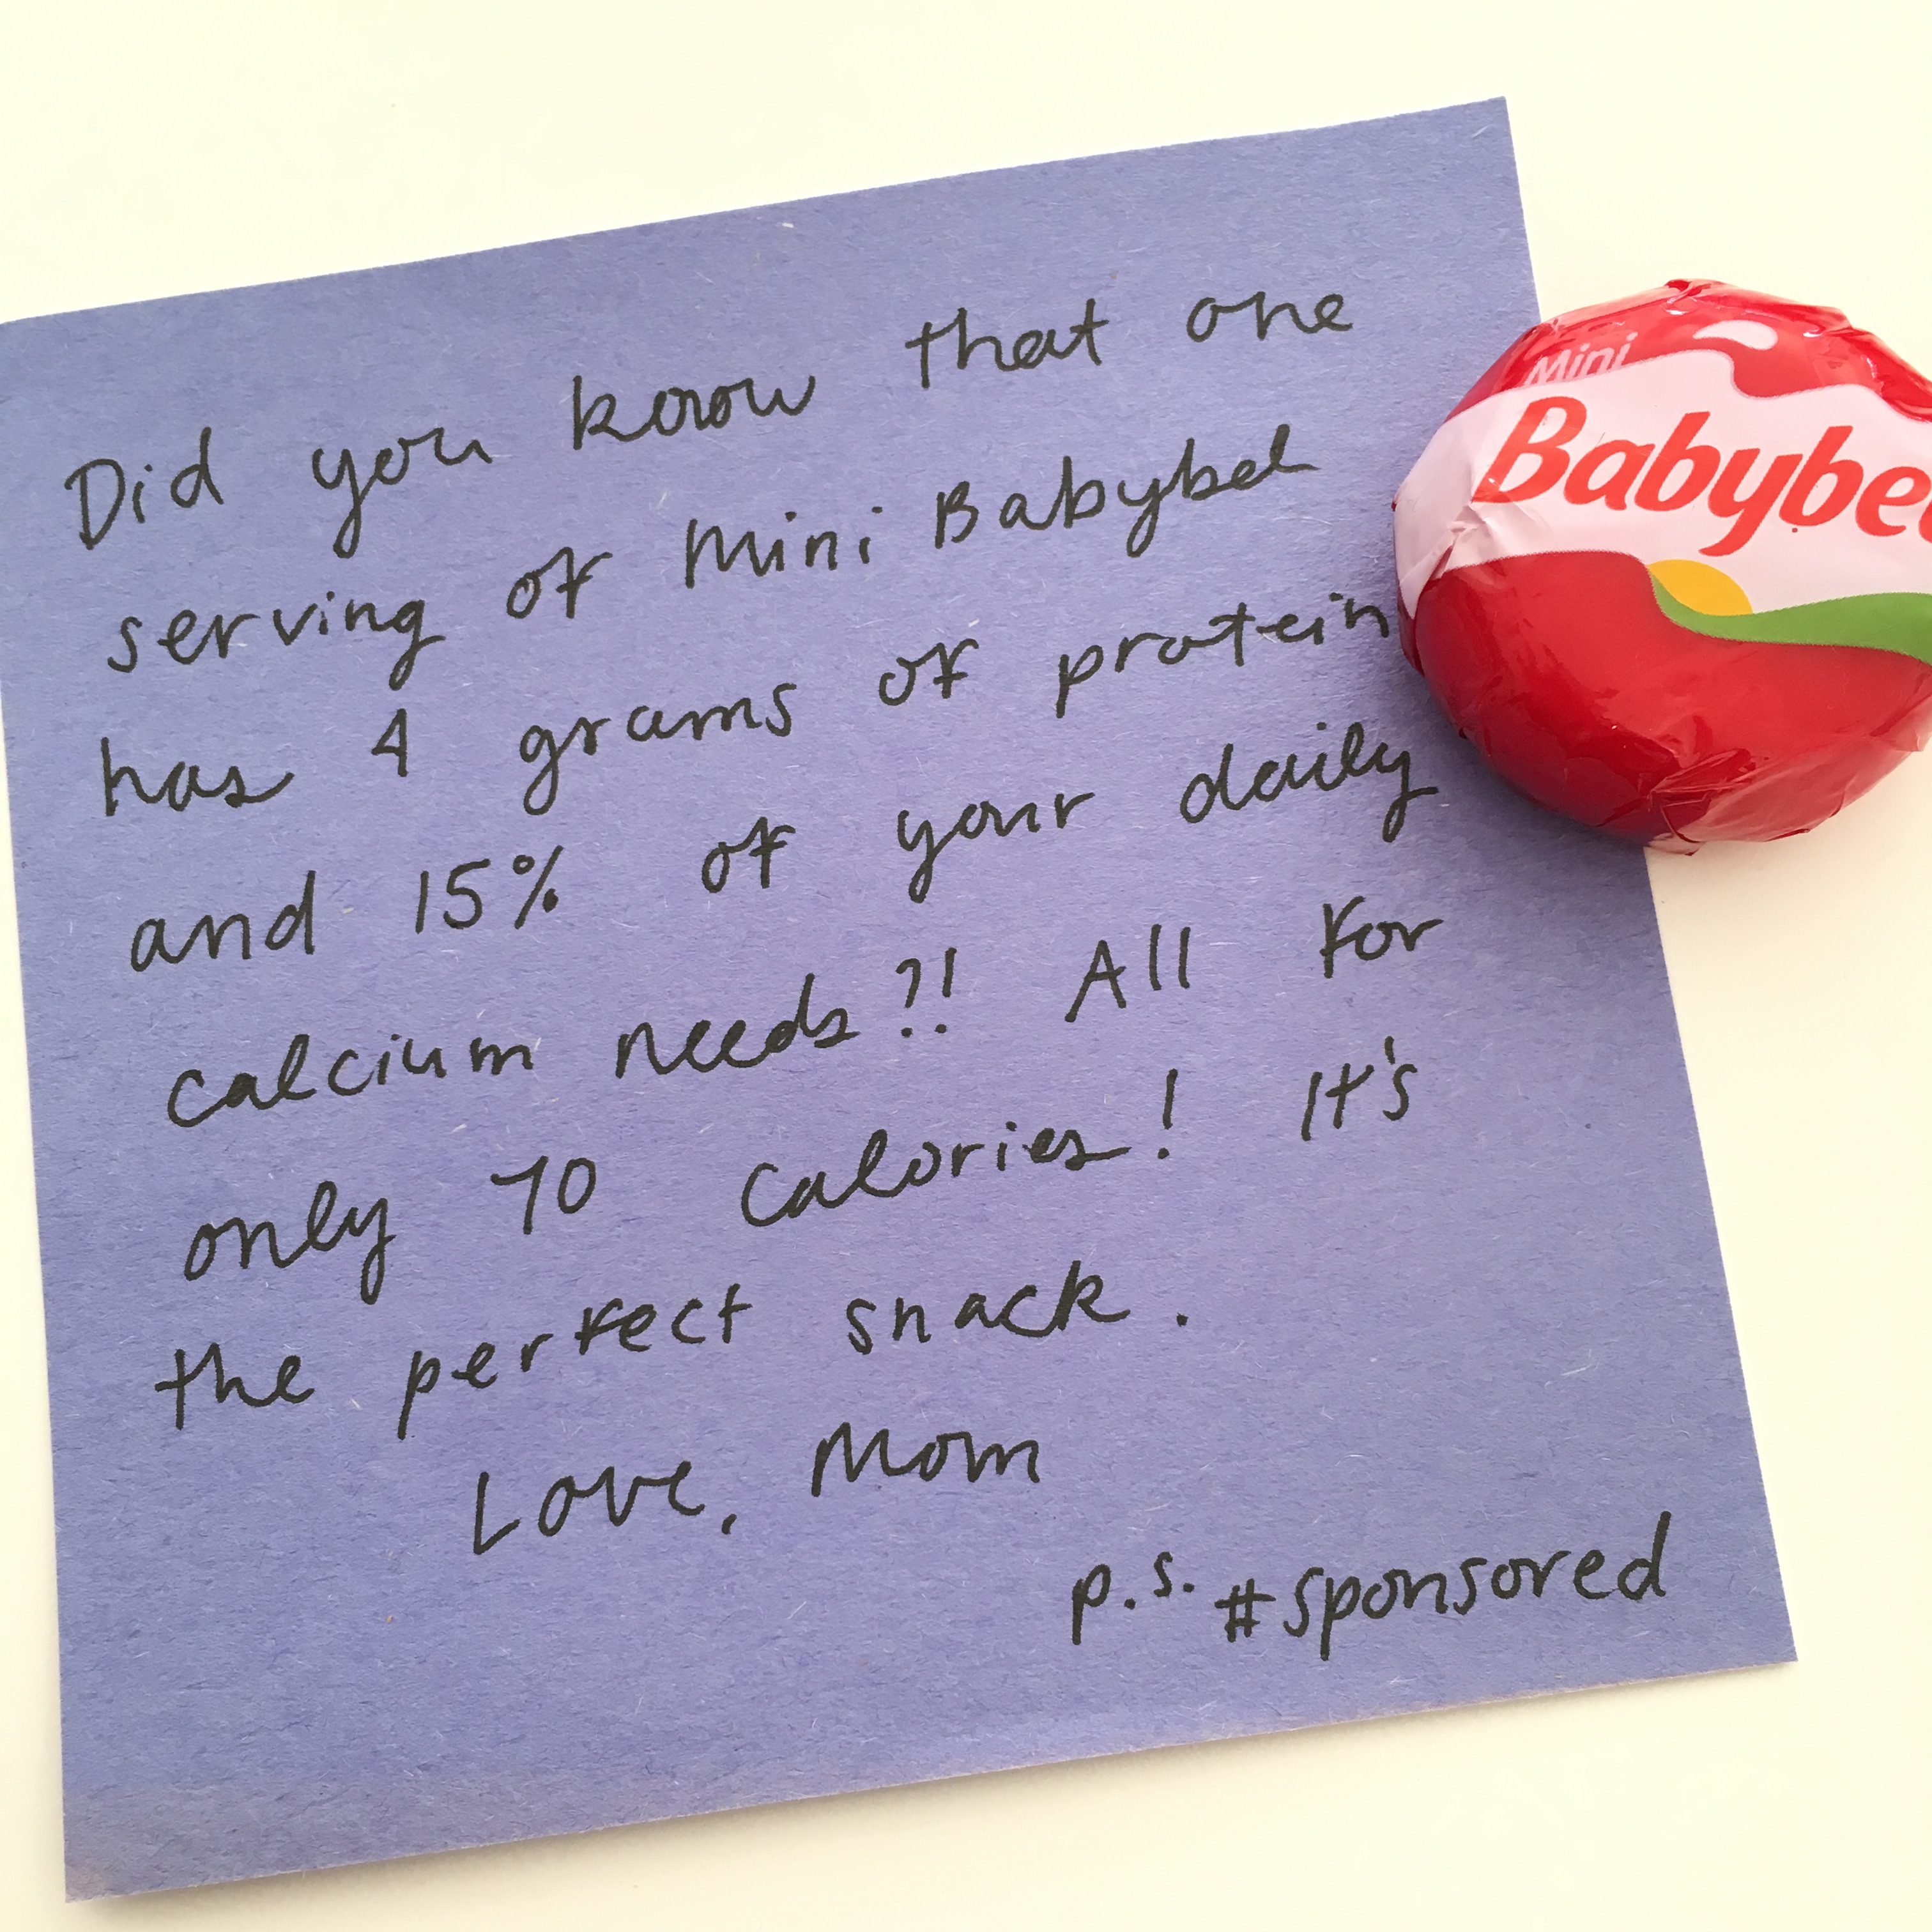 Did you know that one
serving of Mini Babybel
has 4 grams of protein
and 15% of your daily
calcium needs?! All for
only 70 calories! It's
the perfect snack.
Love, Mom
p.s. #sponsored
Mini
Babybel